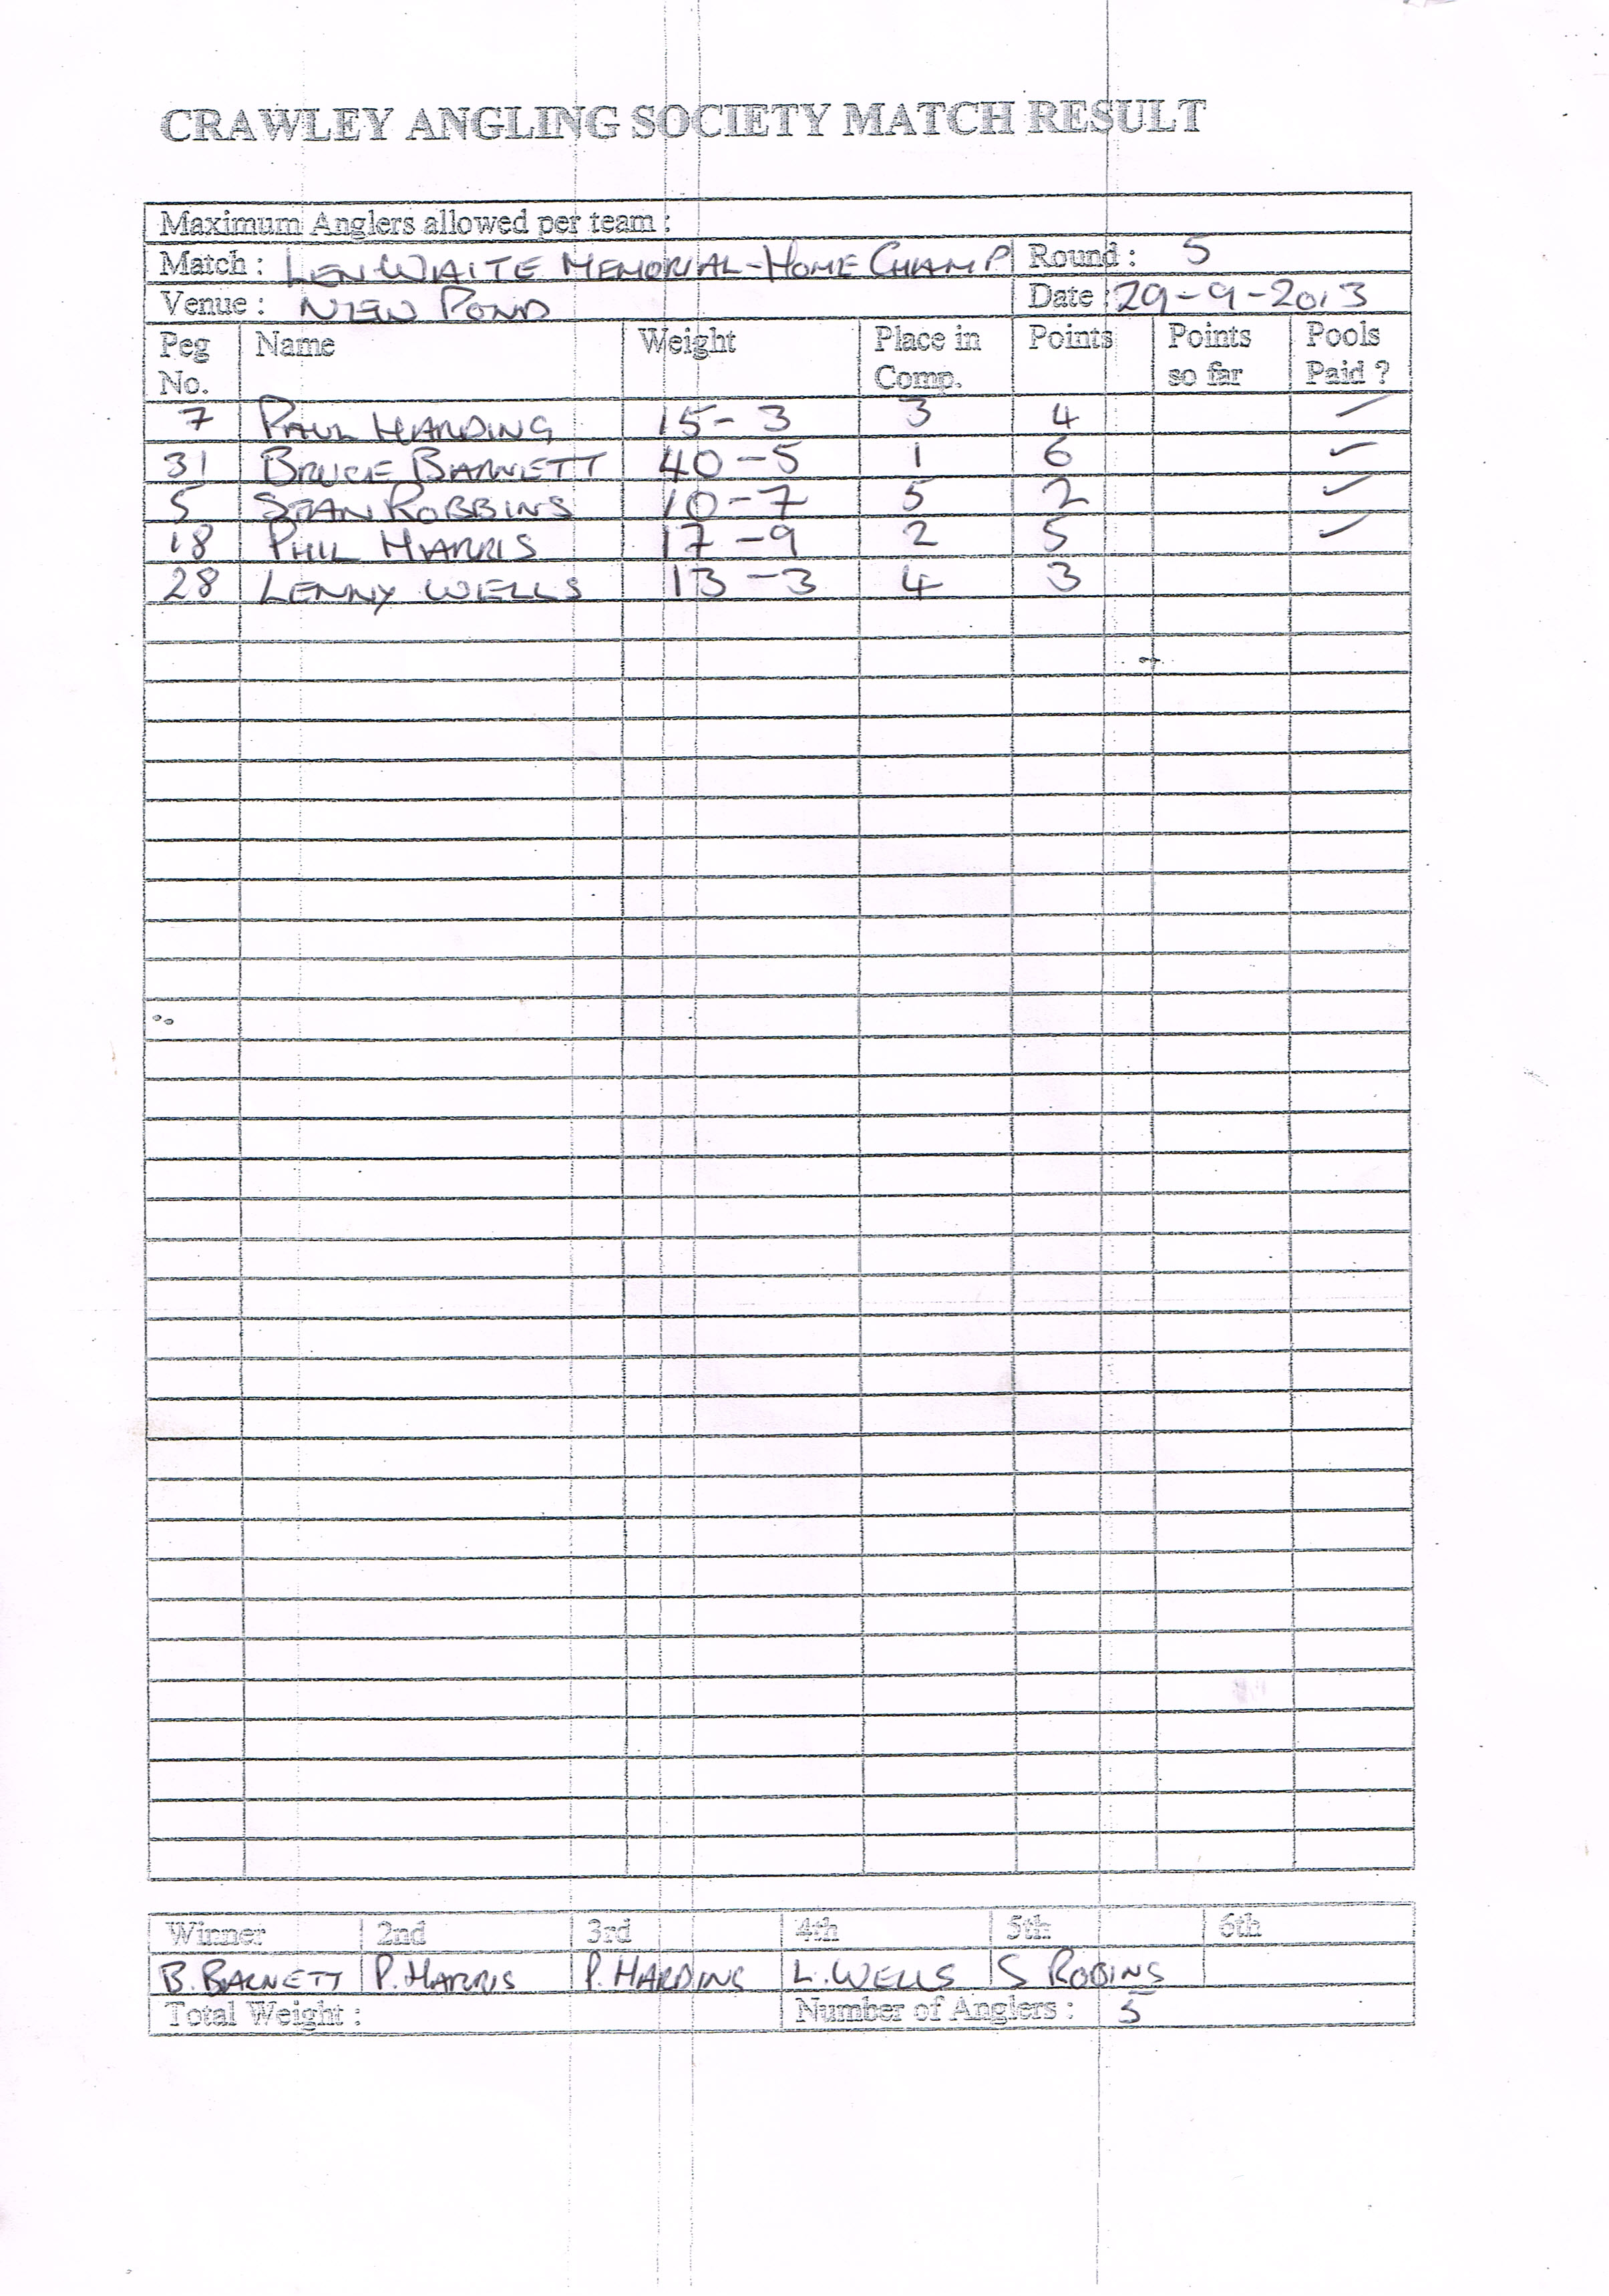 CRAWLEY ANGLING SOCIETY MATCH RESULT
Maximum Anglers allowed per team :
Match : LEN WAITE MEMORIAL - HOME CHAMP Round : 5
Venue : NEW POND Date : 29-9-2013
Peg No. Name Weight Place in Comp. Points Points so far Pools Paid ?
7 PAUL HARDING 15-3 3 4 ✓
31 BRUCE BARNETT 40-5 1 6 ✓
5 STAN ROBBINS 10-7 5 2 ✓
18 PHIL HARRIS 17-9 2 5 ✓
28 LENNY WELLS 13-3 4 3
Winner 2nd 3rd 4th 5th 6th
B. BARNETT P. HARRIS P. HARDING L. WELLS S ROBINS
Total Weight : Number of Anglers : 5